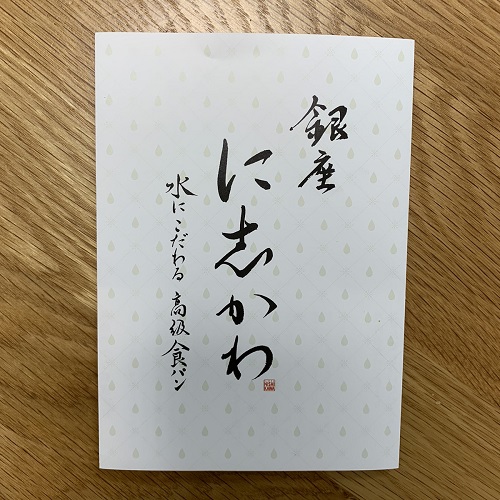 銀座
に志かわ
水にこだわる高級食パン